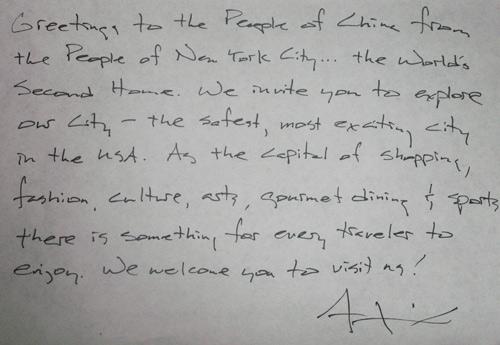 Greetings to the People of China from
the People of New York City... the World's
Second Home. We invite you to explore
our City - the safest, most exciting city
in the USA. As the Capital of shopping,
fashion, culture, arts, gourmet dining & sports
there is something for every traveler to
enjoy. We welcome you to visit us!